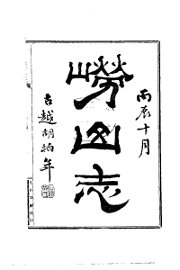 丙辰十月
嶗山志
古越胡 年